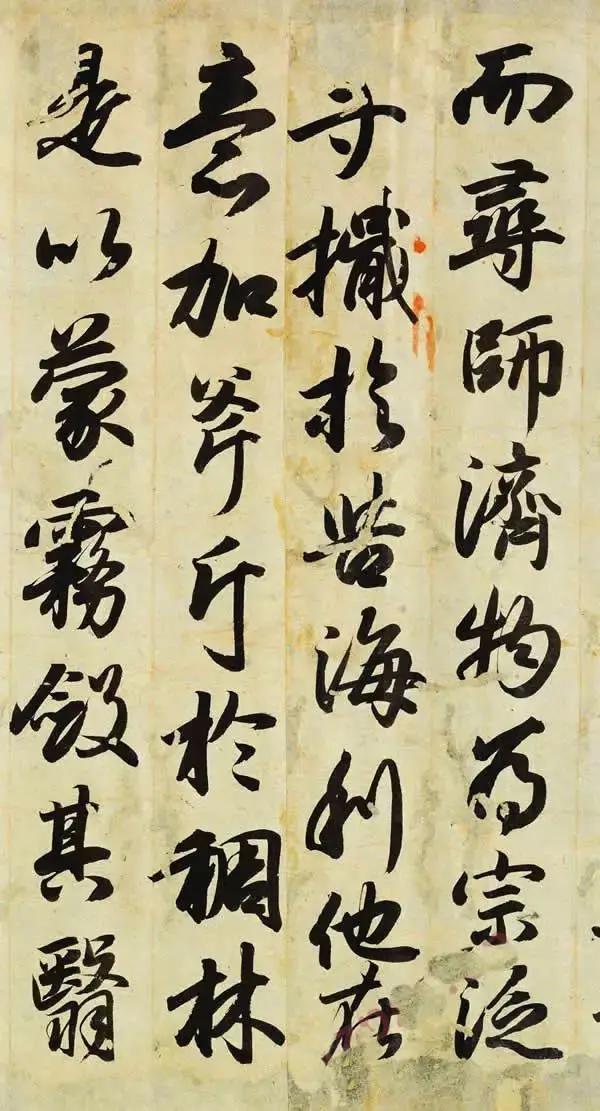 而尋師濟物為宗泛
寸檝於苦海利他在
意加斧斤於稠林
是以蒙霧斂其翳